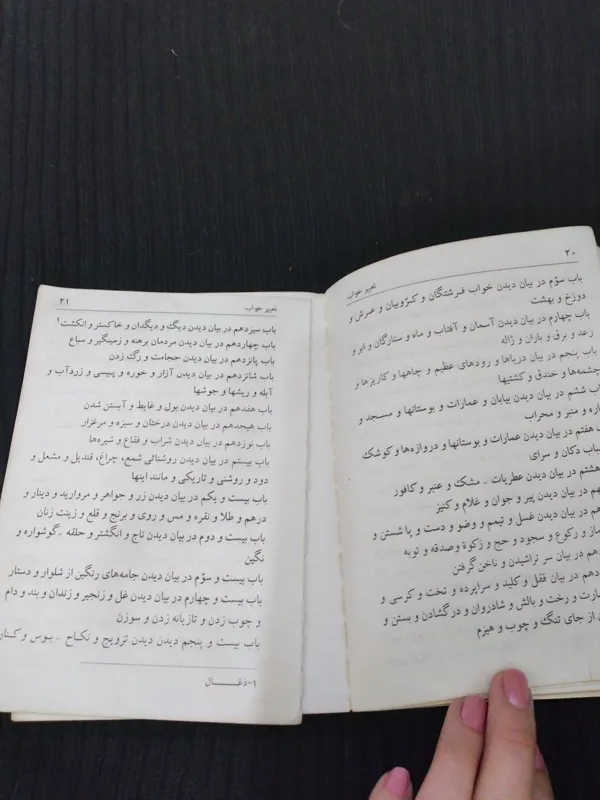 ۲۰
تعبیر خواب
باب سوّم در بیان دیدن خواب فرشتگان و کرّوبیان و عرش و
دوزخ و بهشت
باب چهارم در بیان دیدن آسمان و آفتاب و ماه و ستارگان و ابر و
رعد و برق و باران و ژاله
باب پنجم در بیان دریاها و رودهای عظیم و چاهها و کاریزها و
چشمه‌ها و خندق و کشتیها
ششم در بیان دیدن بیابان و عمارات و بوستانها و مسجد و
و منبر و محراب
هفتم در بیان دیدن عمارات و بوستانها و دروازه‌ها و کوشک
دکان و سرای
هشتم در بیان دیدن عطریات - مشک و عنبر و کافور
در بیان دیدن پیر و جوان و غلام و کنیز
در بیان دیدن غسل و تیمم و وضو و دست و پا شستن و
و رکوع و سجود و حج و زکوة وصدقه و توبه
در بیان سر تراشیدن و ناخن گرفتن
در بیان قفل و کلید و سراپرده و تخت و کرسی و
و رخت و بالش و شادروان و در گشادن و بستن و
از جای تنگ و چوب و هیزم
۲۱
تعبیر خواب
باب سیزدهم در بیان دیدن دیگ و دیگدان و خاکستر و انگشت۱
باب چهاردهم در بیان دیدن مردمان برهنه و زمینگیر و سباع
باب پانزدهم در بیان دیدن حجامت و رگ زدن
باب شانزدهم در بیان دیدن آزار و خوره و پیسی و زردآب و
آبله و ریشها و جوشها
باب هفدهم در بیان دیدن بول و غایط و آبستن شدن
باب هیجدهم در بیان دیدن درختان و سبزه و مرغزار
باب نوزدهم در بیان دیدن شراب و فقاع و شیره‌ها
باب بیستم در بیان دیدن روشنائی شمع، چراغ، قندیل و مشعل و
دود و روشنی و تاریکی و مانند اینها
باب بیست و یکم در بیان دیدن زر و جواهر و مروارید و دینار و
درهم و طلا و نقره و مس و روی و برنج و قلع و زینت زنان
باب بیست و دوم در بیان دیدن تاج و انگشتر و حلقه - گوشواره و
نگین
باب بیست و سوّم در بیان دیدن جامه‌های رنگین از شلوار و دستار
باب بیست و چهارم در بیان دیدن غل و زنجیر و زندان و بند و دام
و چوب زدن و تازیانه زدن و سوزن
باب بیست و پنجم دیدن دیدن ترویج و نکاح - بوس و کنار
۱-ذغال